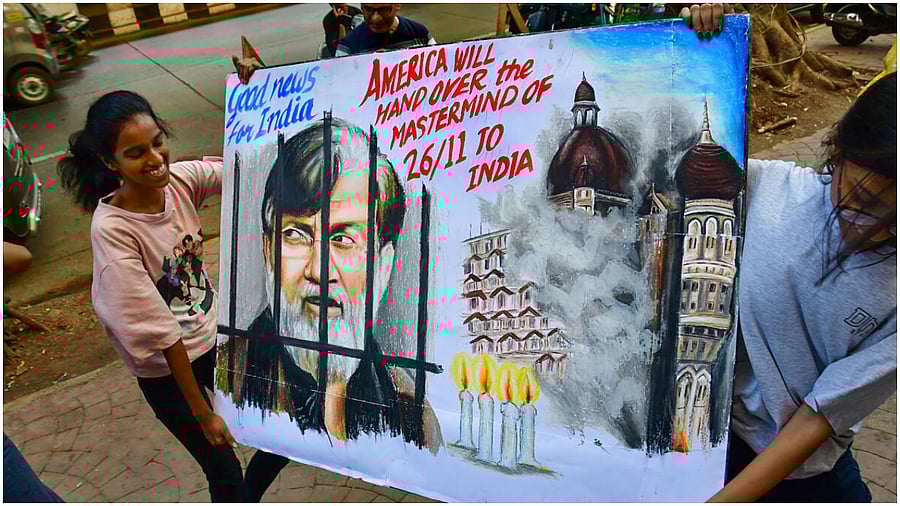 Good news
for India
AMERICA WILL
HAND OVER the
MASTERMIND OF
26/11 TO
INDIA